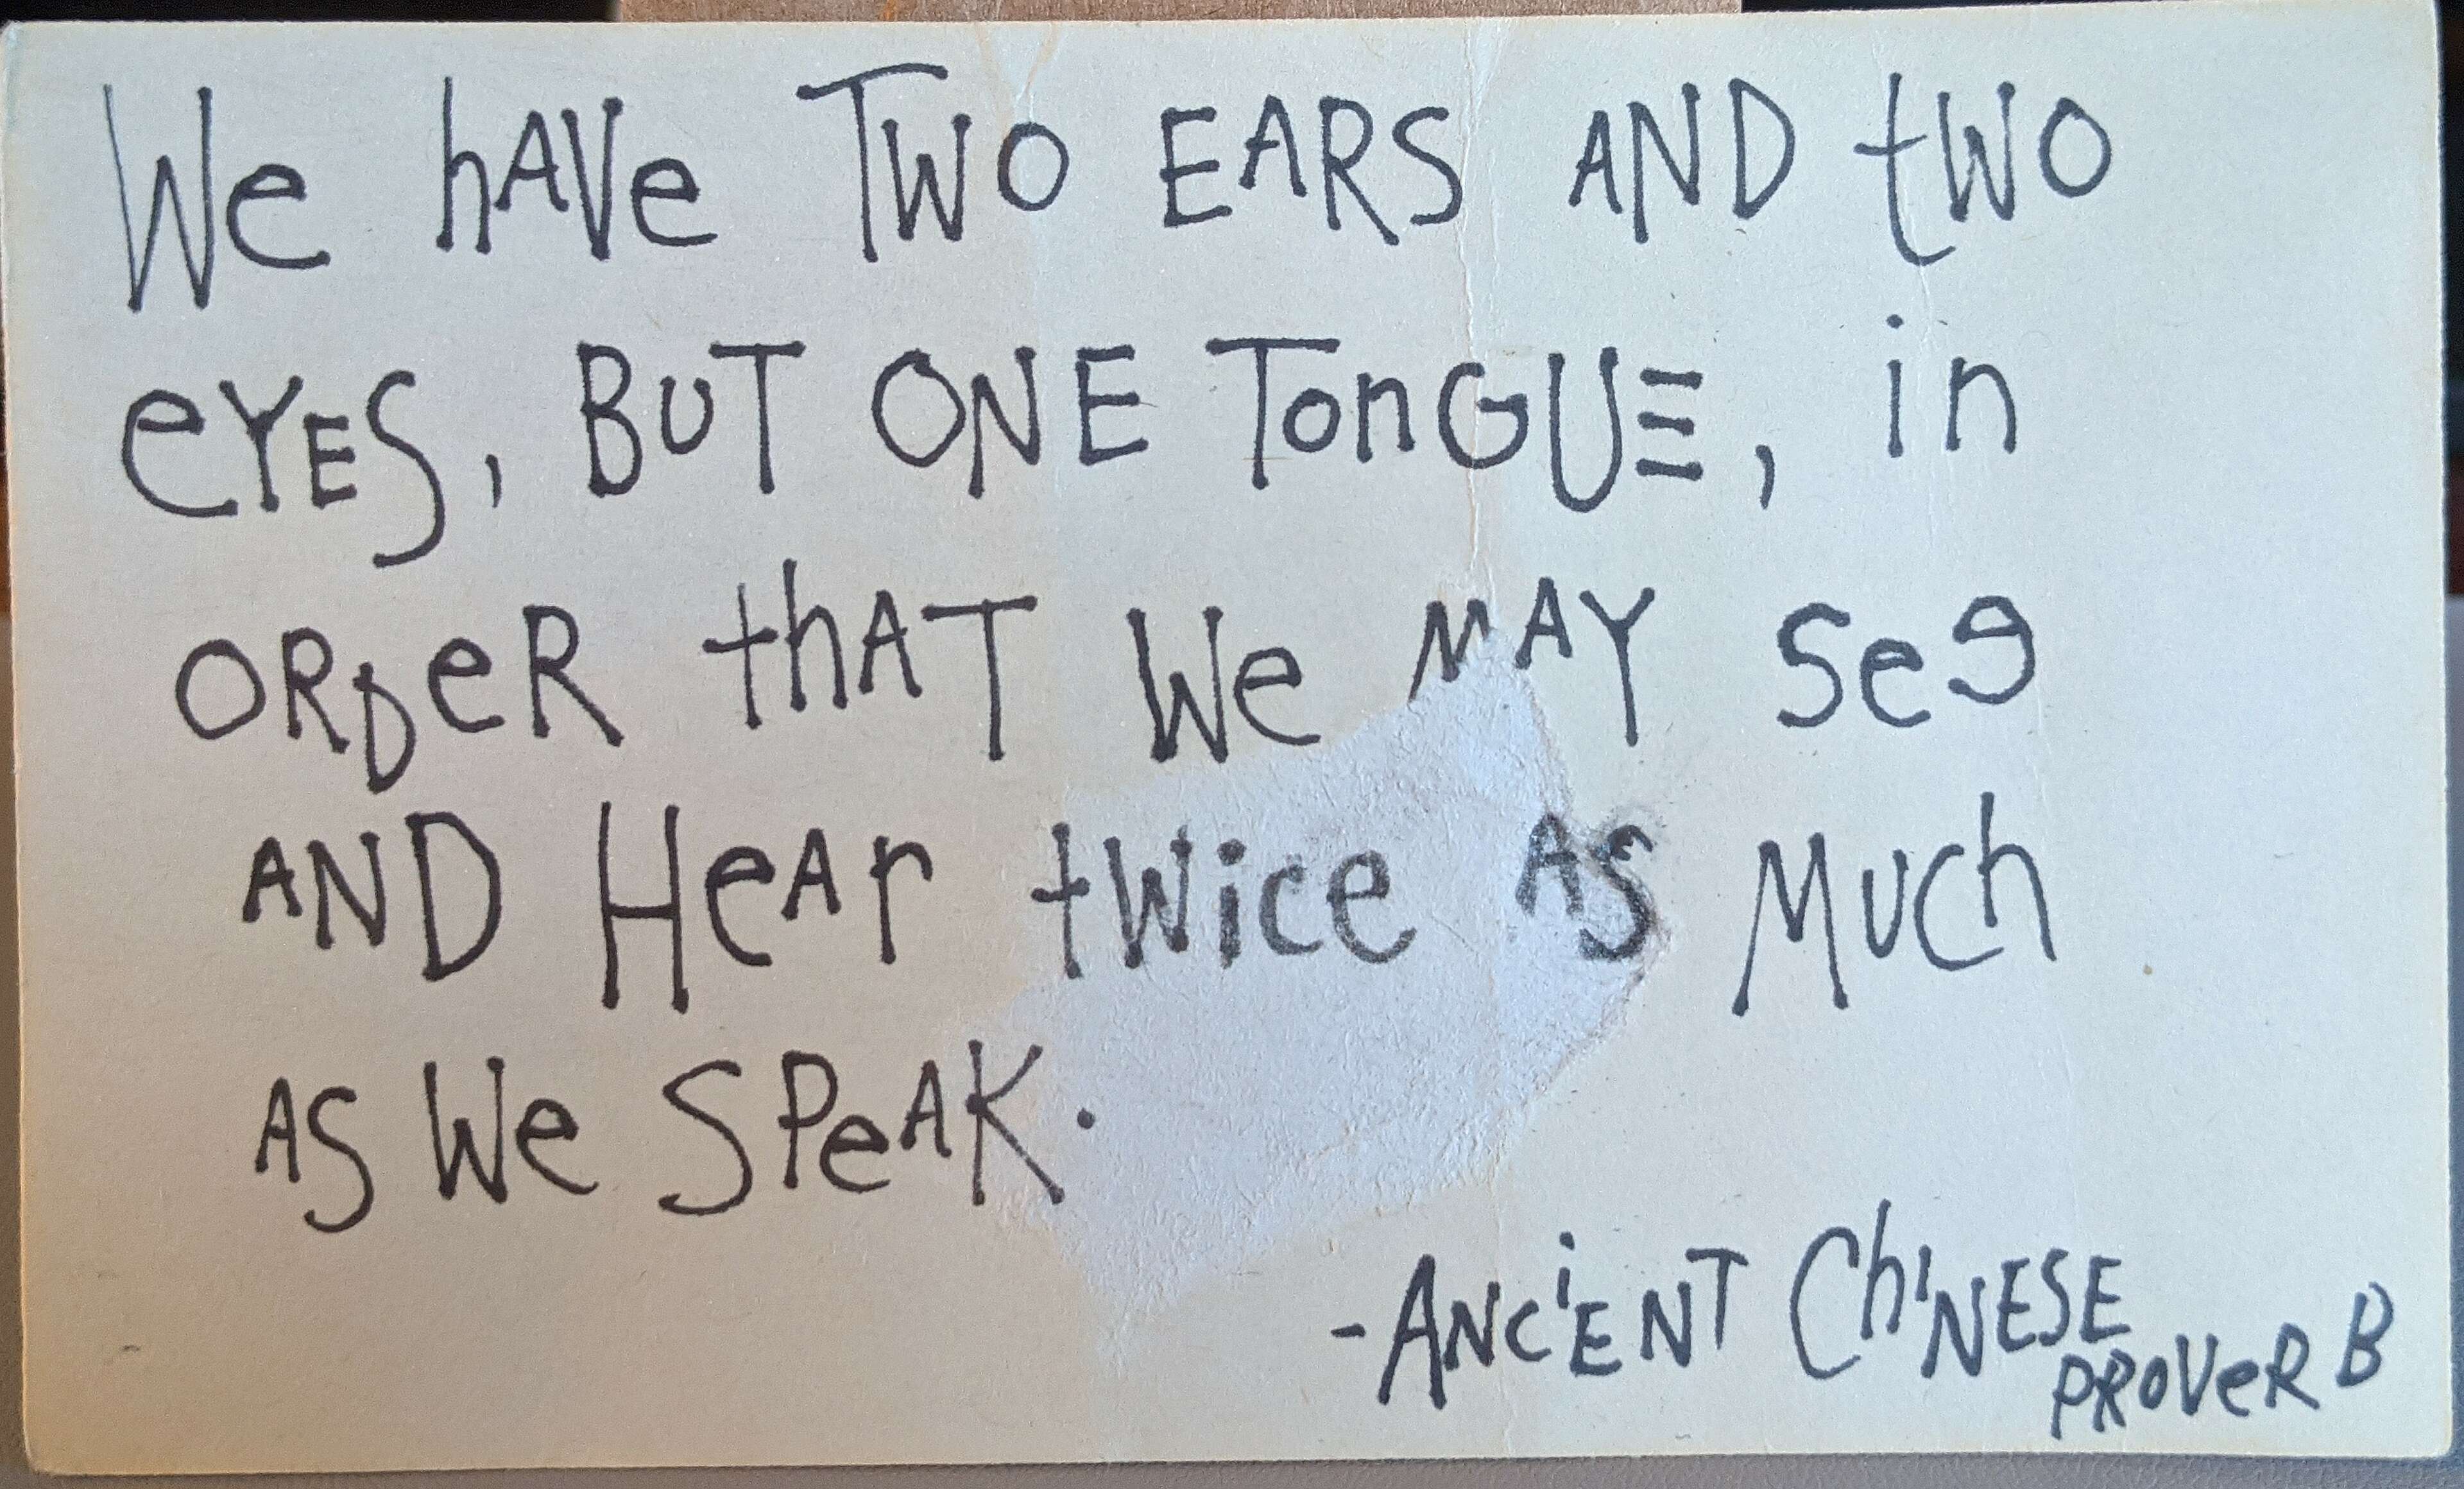 We hAVe Two EARS AND tWO
eYES, BUT ONE TonGUE, in
ORDeR thAT We MAY See
AND HeAr twice AS MUCh
AS We SPeAK.
-ANCiENT ChiNESE
PROVeRB